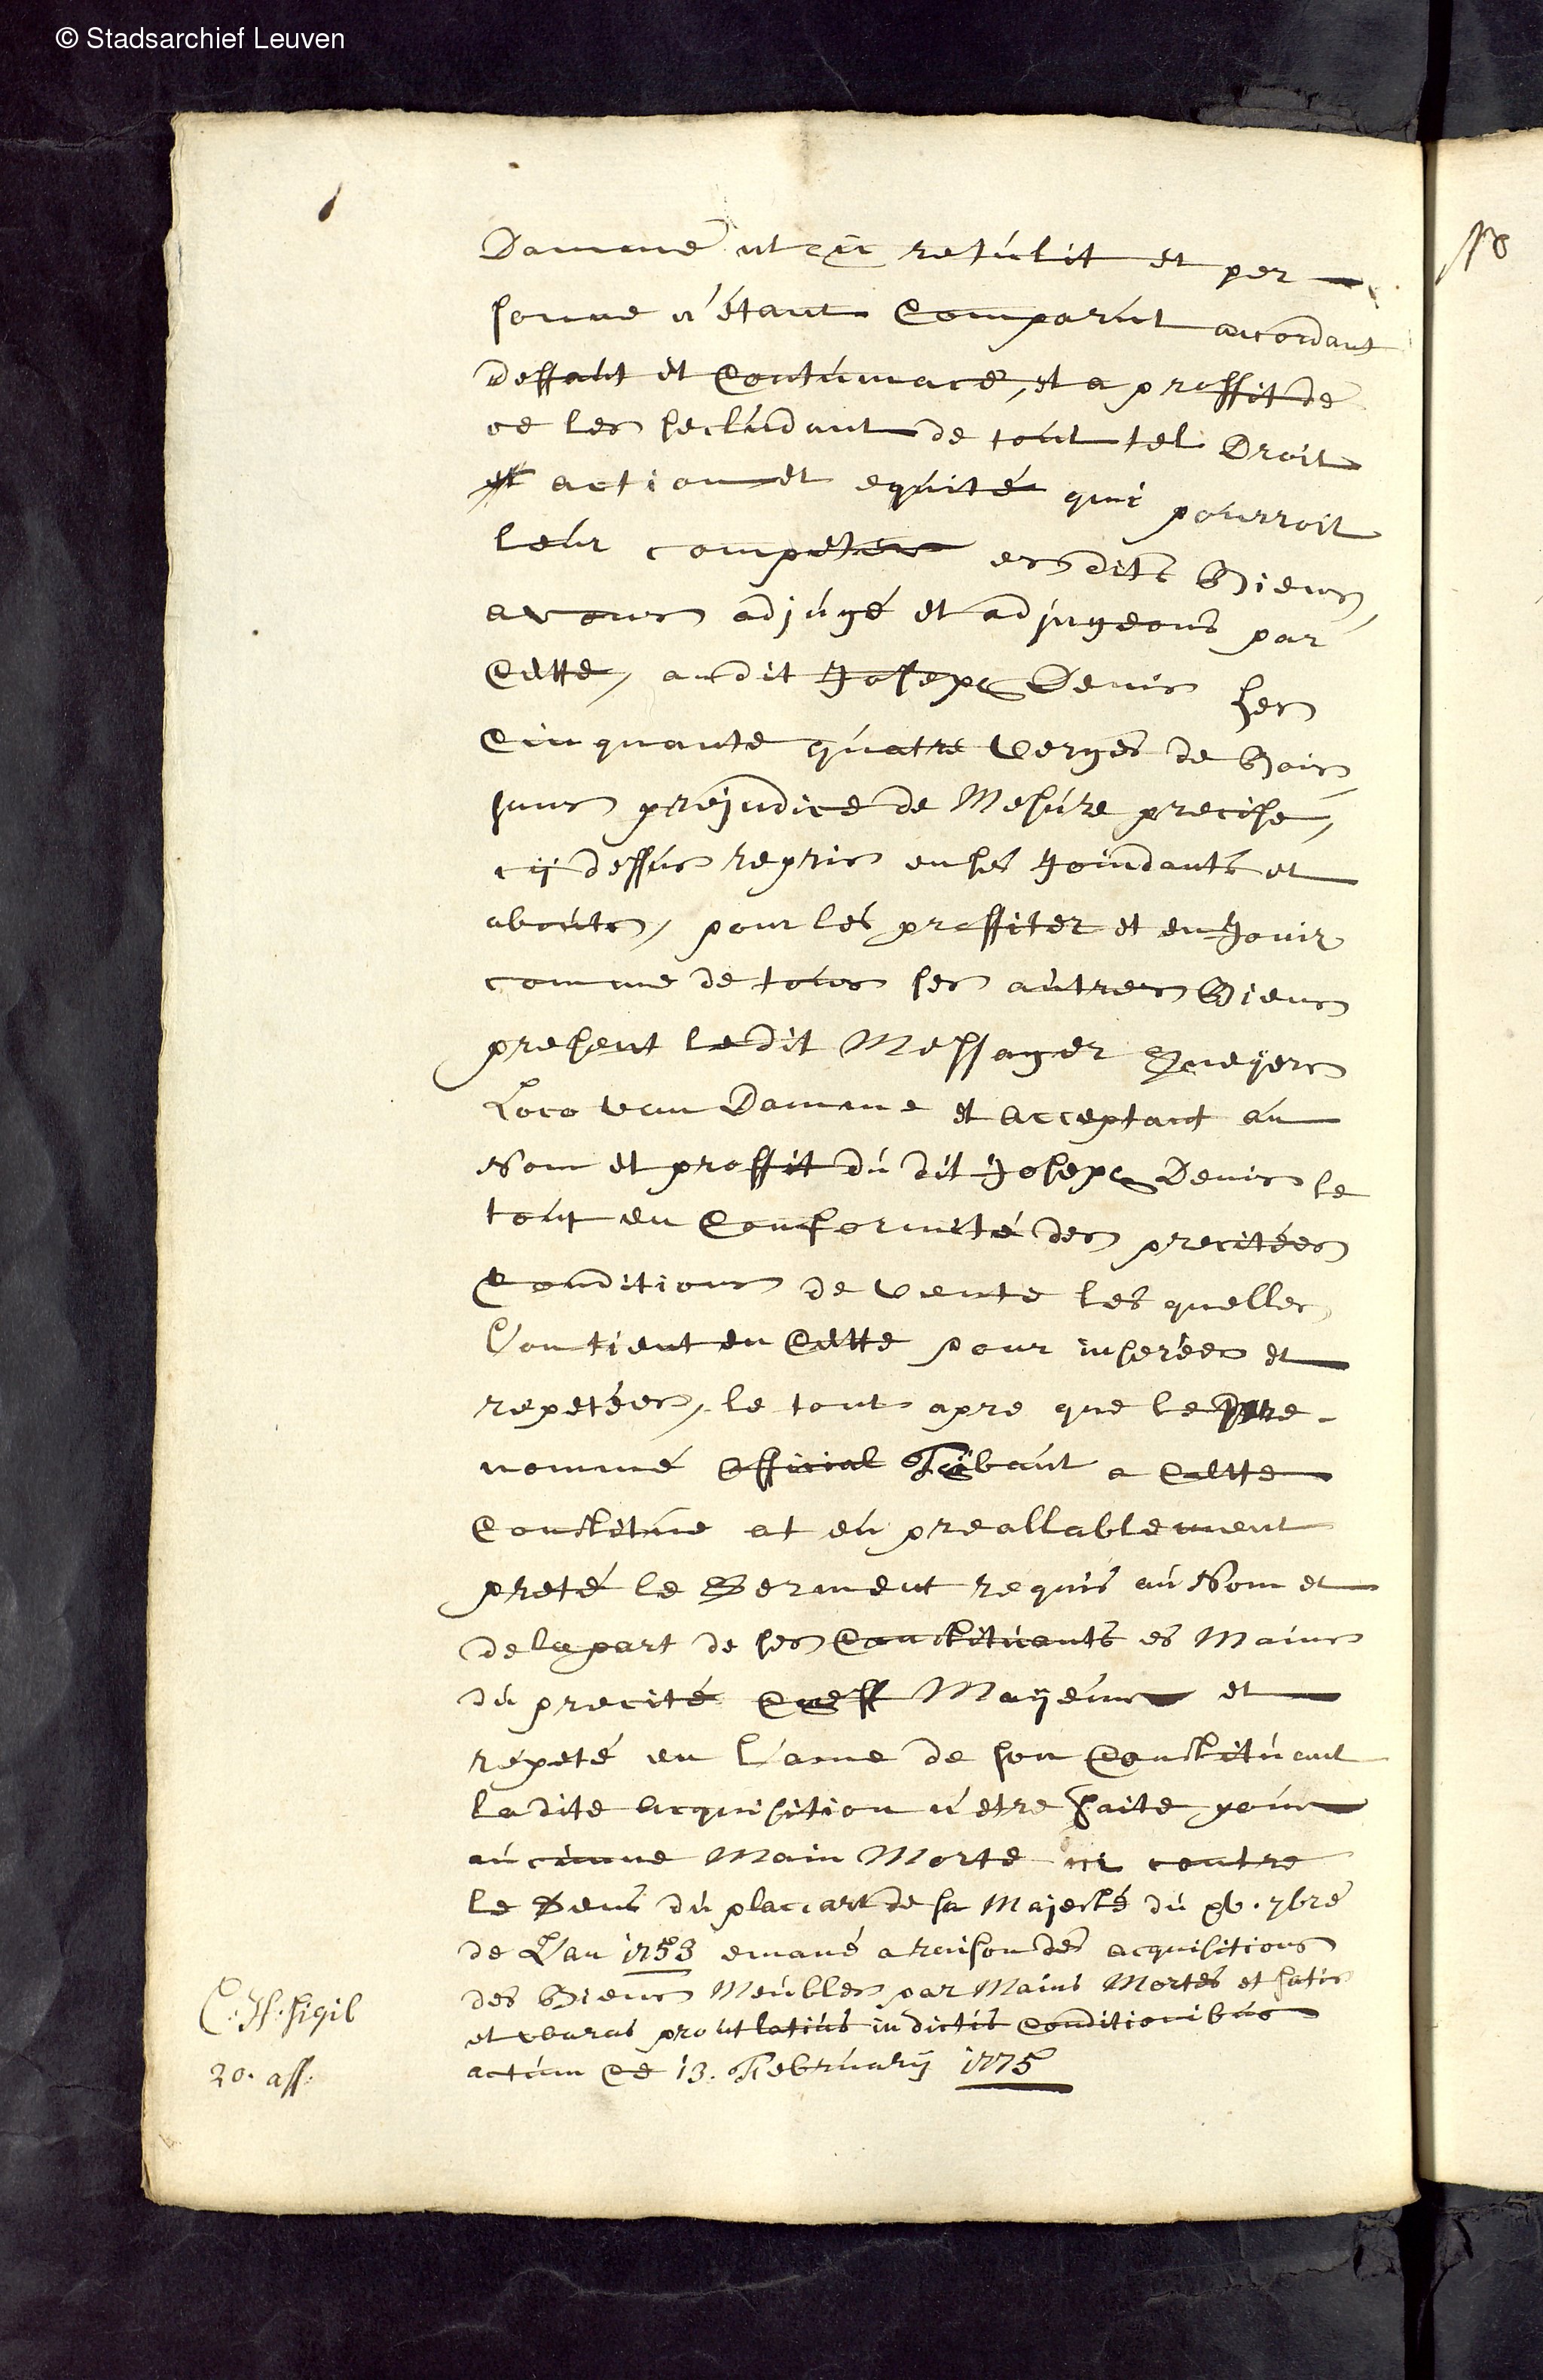 © Stadsarchief Leuven
Damme ut ej retulit et per
sonne n'étant Comparut accordant
deffaut et Contumace, et a proffit de
ce les secludant de tout tel Droit
action et equité qui pourroit
leur competer esdits Biens,
avons adjugé et adjugeons par
Cette, audit Joseph Denis les
Cinquante quatre verges de Bois
sans prejudice de Mesure precise,
cij dessus repris en ses Joindants et
abouts, pour les proffiter et en Jouir
comme de tous ses autres Biens
present ledit Messager
Loco van Damme et acceptant au
Nom et proffit du dit Joseph Denis le
tout en Conformité des precitées
Conditions de vente les quelles
l'on tient en Cette pour inserées et
repetées, le tout apre que le pre-
nommé official Tibaut a Cette
Constitue at eu preallablement
preté le Serment requis au Nom et
de la part de ses Constituants es Mains
du precité Cheff Mayeur et
repeté en l'ame de son Constituant
ladite acquisition n'etre faite pour
aucunne Main Morte ni contre
le Sens du placcart de sa Majesté du 15. 7bre
de L'an 1753 emané a raison des acquisitions
des Biens Meubles par Mains Mortes et satis
et waras prout latius in dictis Conditionibus
actum Ce 13. February 1775
sigil
20. aff.